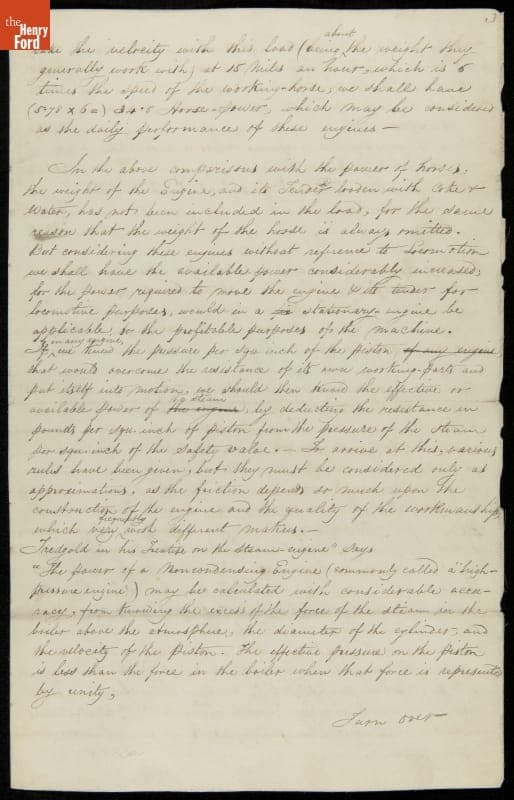 the Henry Ford
3
about
take the velocity with this load (being ^ the weight they
generally work with) at 15 Miles an hour, which is 6
times the speed of the working-horse; we shall have
(5.78 x 6 =) 34.8 Horse-power, which may be considered
as the daily performance of these engines —
In the above comparisons with the power of horses,
the weight of the Engine, and its Tender loaden with Coke &
Water, has not been included in the load, for the same
reison that the weight of the horse is always omitted.
But considering these engines without refrence to Locomotion
we shall have the available power considerably increased;
for the power required to move the engine & its tender for
locomotive purposes, would in a stationary engine be
applicable, for the profitable purposes of the machine.
in any engine,
If ^ we knew the pressure per squ inch of the piston of any engine
that would overcome the resistance of its own working-parts and
put itself into motion, we should then know the effective or
by steam
available power of the engine, by deducting the resistance in
pounds per squ. inch of piston from the pressure of the steam
per squ. inch of the Safety Valve. — To arrive at this, various
rules have been given, but they must be considered only as
approximations, as the friction depends so much upon the
construction of the engine and the quality of the workmanship,
frequently
which very with different makers. —
Tredgold in his Treatise on the Steam-engine" says
"The power of a Noncondensing Engine (commonly called a "high-
pressure engine") may be calculated with considerable accu-
racy, from knowing the excess of the force of the steam in the
boiler above the atmosphere, the diameter of the cylinder, and
the velocity of the Piston. The effective pressure on the piston
is less than the force in the boiler when that force is represented
by unity,
Turn over